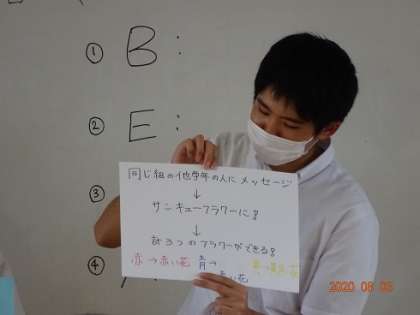 ① B:
② E:
③
④
同じ組の他学年の人にメッセージ
↓
サンキューフラワーに!
↓
計3つのフラワーができる!
赤→赤い花 青→
青い花
黄→黄色い花
2020 08 03